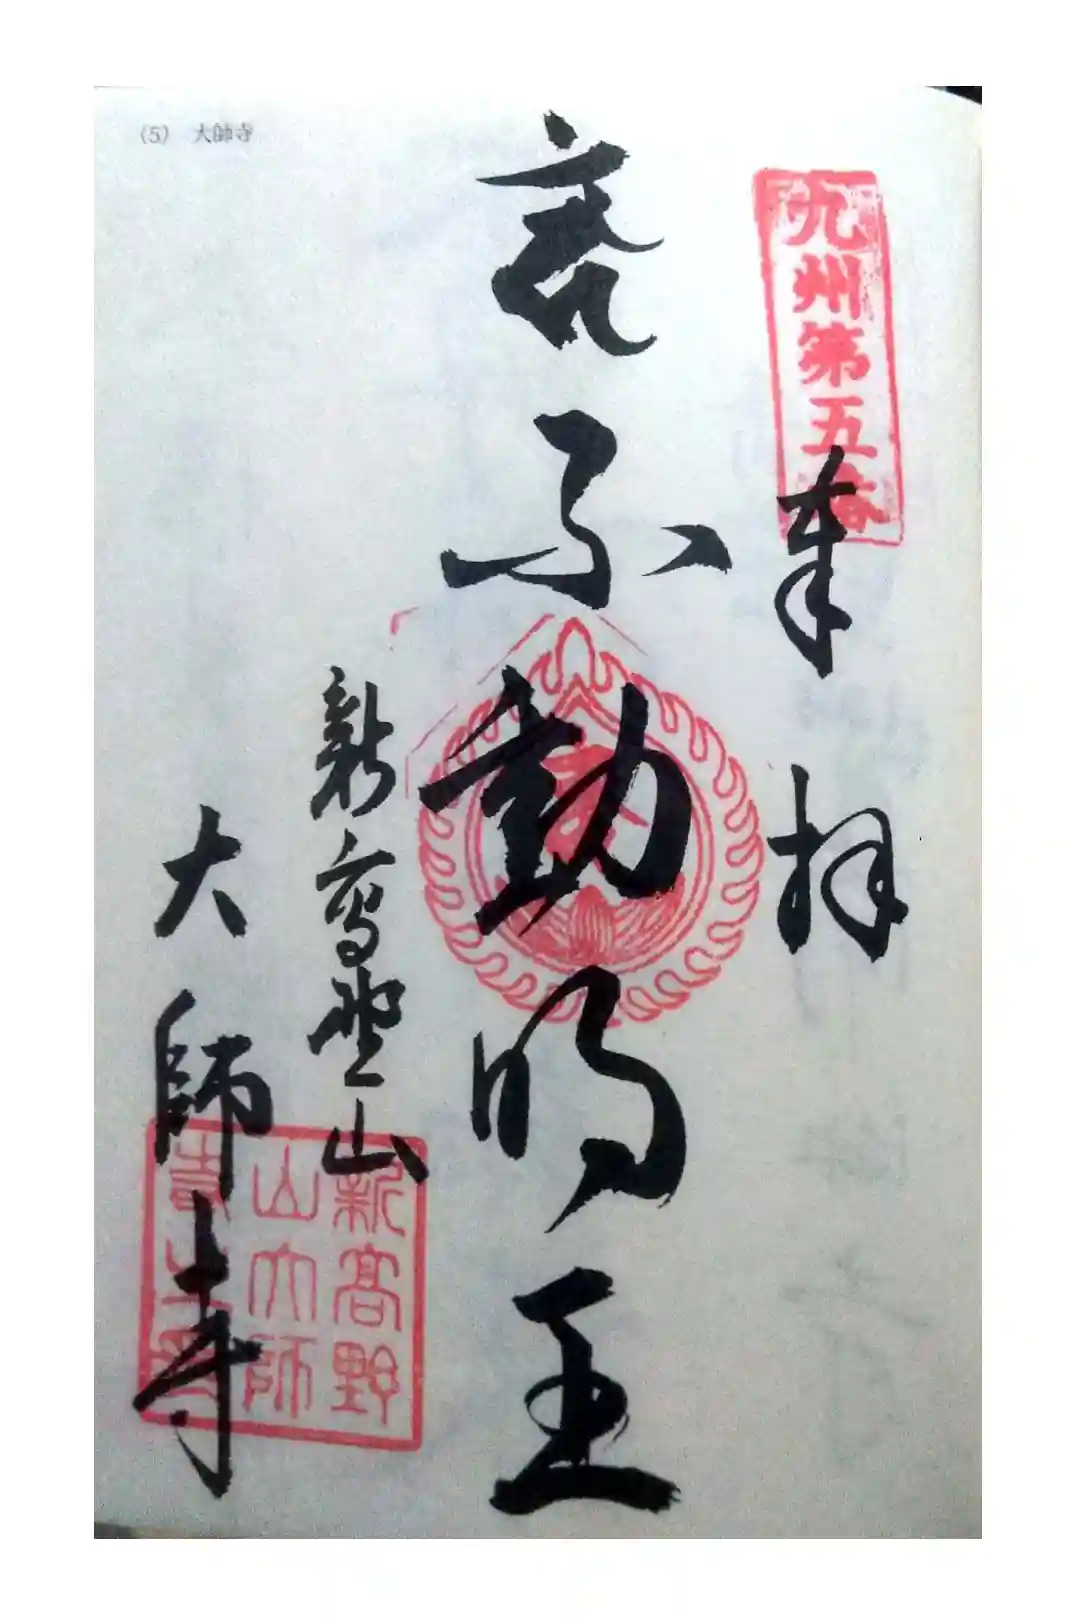 (5) 大師寺
九州第五番
奉拝
不動明王
新高野山
大師寺
新高野
山大師
寺